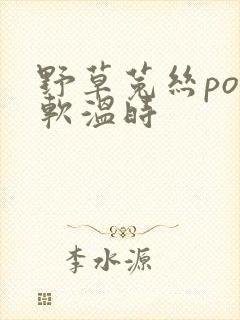 野草菟絲po
軟溫時
李水源